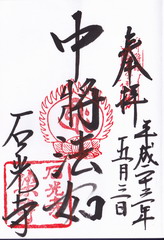 奉拝
平成二十二年
五月三日
中将法如
石光寺